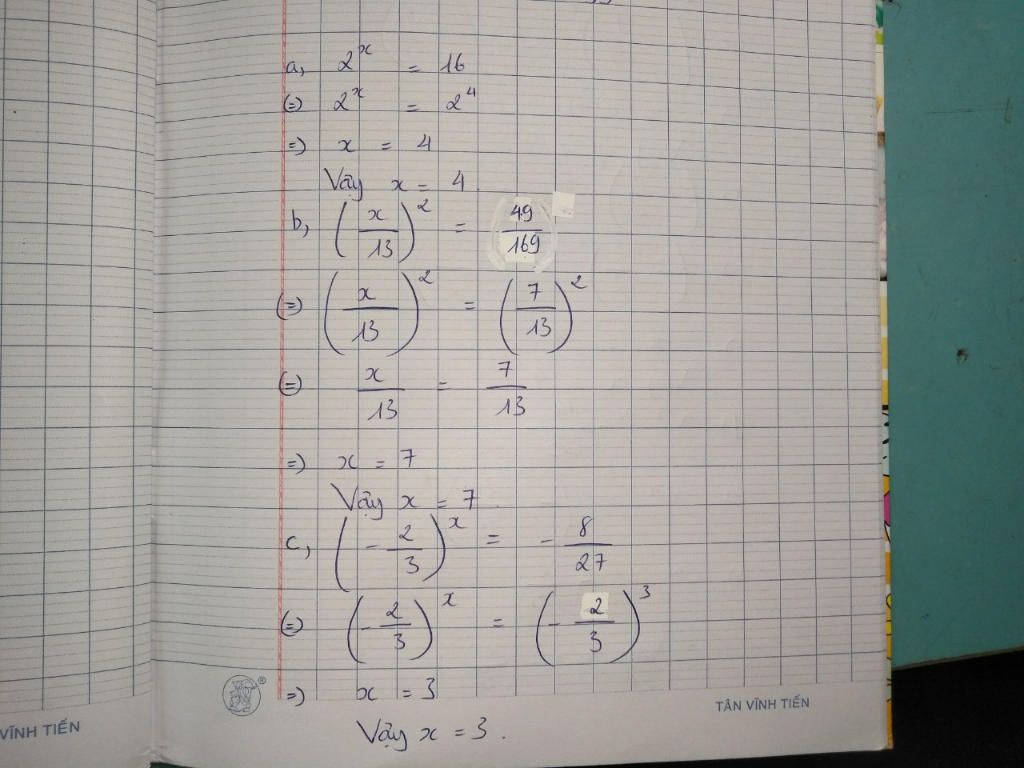 a, 2^x = 16
(=) 2^x = 2^4
=) x = 4
Vậy x = 4.
b, (x/13)^2 = (49/169)
(=) (x/13)^2 = (7/13)^2
(=) x/13 = 7/13
=) x = 7
Vậy x = 7
c, (-2/3)^x = -8/27
(=) (-2/3)^x = (-2/3)^3
=) x = 3
Vậy x = 3.
®
TÂN VĨNH TIẾN
VĨNH TIẾN